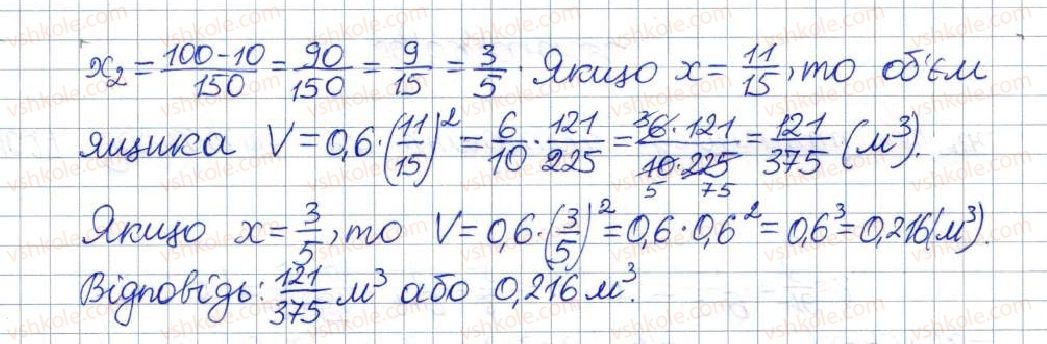 x₂ = (100 − 10)/150 = 90/150 = 9/15 = 3/5. Якщо x = 11/15, то об'єм
ящика V = 0,6 · (11/15)² = 6/10 · 121/225 = (6 · 121)/(10 · 225) = 121/375 (м³).
Якщо x = 3/5, то V = 0,6 · (3/5)² = 0,6 · 0,6² = 0,6³ = 0,216 (м³).
Відповідь: 121/375 м³ або 0,216 м³.